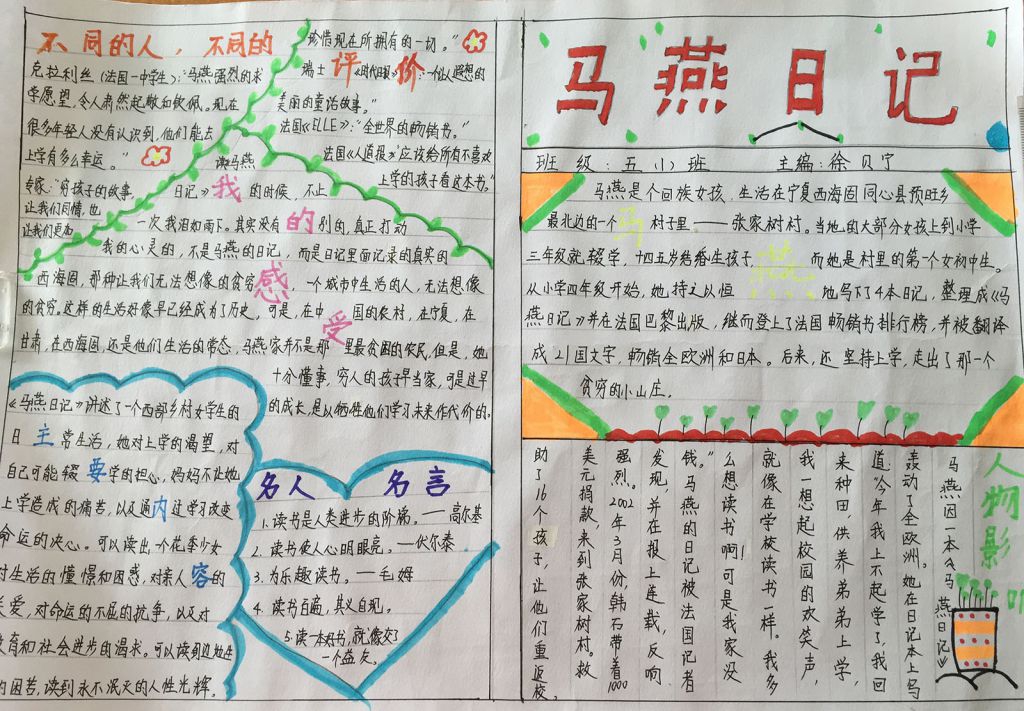 马燕日记
班 级：五（1）班 主编：徐贝宁
马燕是个回族女孩，生活在宁夏西海固同心县预旺乡
最北边的一个马村子里——张家树村。当地的大部分女孩上到小学
三年级就辍学，十四五岁结婚生孩子，燕而她是村里的第一个女初中生。
从小学四年级开始，她持之以恒 地写下了4本日记，整理成《马
燕日记》并在法国巴黎出版，继而登上了法国畅销书排行榜，并被翻译
成21国文字，畅销全欧洲和日本。后来，还坚持上学，走出了那一个
贫穷的小山庄。
人物影响
马燕因一本《马燕日记》
轰动了全欧洲。她在日记本上写
道：“今年我上不起学了，我回
来种田，供养弟弟上学，
我一想起校园的欢笑声，
就像在学校读书一样。我多
么想读书啊！可是我家没
钱。”马燕的日记被法国记者
发现，并在报上连载，反响
强烈。2002年3月份，韩石带着1000
美元捐款，来到张家树村。救
助了16个孩子，让他们重返校。
不同的人，不同的
评价
克拉利丝（法国一中学生）：“马燕强烈的求
学愿望，令人肃然起敬和钦佩。现在
很多年轻人没有认识到，他们能去
上学有多么幸运。”
专家：“穷孩子的故事，
让我们同情，也
让我们更加
珍惜现在所拥有的一切。”
瑞士《时代报》：一位人遐想的
美丽的童话故事。”
法国《ELLE》：“全世界的畅销书。”
法国《人道报》“应该给所有不喜欢
上学的孩子看这本书。”
我的感受
读马燕
日记》的时候，不止
一次我泪如雨下。其实没有别的，真正打动
我的心灵的，不是马燕的日记，而是日记里面记录的真实的
西海固，那种让我们无法想像的贫穷，一个城市中生活的人，无法想像
的贫穷。这样的生活好像早已经成为了历史，可是，在中国的农村，在宁夏，在
甘肃，在西海固，还是他们生活的常态，马燕家并不是那里最贫困的农民，但是，她
十分懂事，穷人的孩子早当家，可是过早
的成长，是以牺牲他们学习未来作代价的。
主要内容
《马燕日记》讲述了一个西部乡村女学生的
日常生活，她对上学的渴望，对
自己可能辍学的担心，妈妈不让她
上学造成的痛苦，以及通过学习改变
命运的决心。可以读出，个花季少女
对生活的憧憬和困惑，对亲人的
关爱，对命运的不屈的抗争，以及对
教育和社会进步的渴求。可以读到边地生
的困苦，读到永不泯灭的人性光辉。
名人 名言
1.读书是人类进步的阶梯。——高尔基
2.读书使人心明眼亮。——伏尔泰
3.为乐趣读书。——毛姆
4.读书百遍，其义自现。
5.读一本好书，就像交了
一个益友。